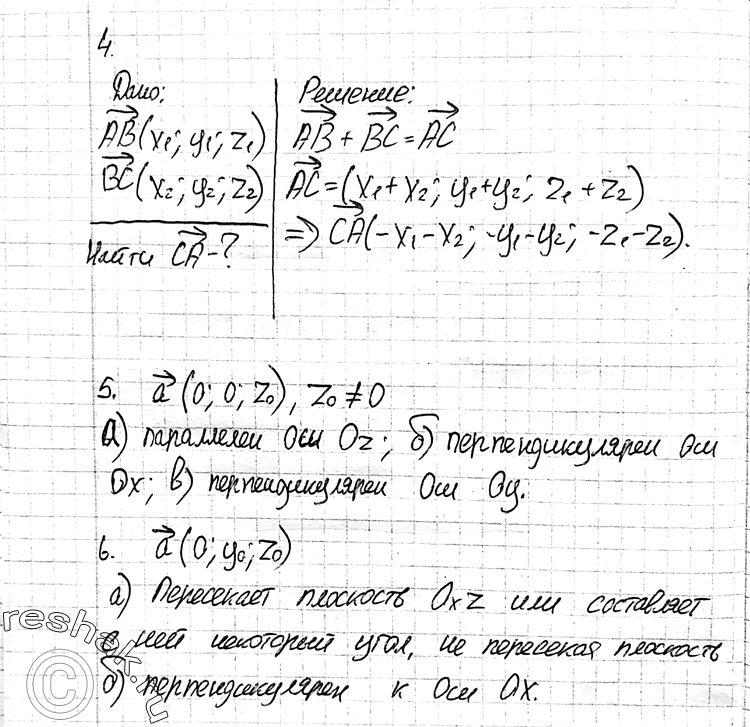 4.
Дано:
AB(x₁; y₁; z₁)
BC(x₂; y₂; z₂)
Найти CA-?
Решение:
AB + BC = AC
AC = (x₁+x₂; y₁+y₂; z₁+z₂)
=> CA(-x₁-x₂; -y₁-y₂; -z₁-z₂).
5. a (0; 0; z₀), z₀ ≠ 0
а) параллелен оси Oz; б) перпендикулярен оси
Ox; в) перпендикулярен оси Oy.
6. a (0; y₀; z₀)
а) Пересекает плоскость Oxz или составляет
с ней некоторый угол, не пересекая плоскость
б) перпендикулярен к оси Ox.
reshak.ru
©